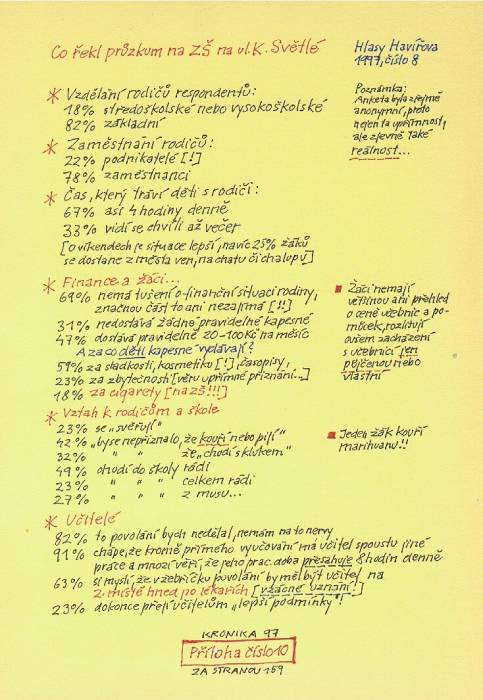 Co řekl průzkum na ZŠ na ul. K. Světlé
Hlasy Havířova
1997, číslo 8
Poznámka:
Anketa byla zřejmě
anonymní, proto
nejen ta upřímnost,
ale zjevně také
reálnost...
* Vzdělání rodičů respondentů:
18% středoškolské nebo vysokoškolské
82% základní
* Zaměstnání rodičů:
22% podnikatelé [!]
78% zaměstnanci
* Čas, který tráví děti s rodiči:
67% asi 4 hodiny denně
33% vidí se chvíli až večer
[o víkendech je situace lepší, navíc 25% žáků
se dostane z města ven, na chatu či chalupu]
* Finance a žáci...
69% nemá tušení o finanční situaci rodiny,
značnou část to ani nezajímá [!!]
31% nedostává žádné pravidelné kapesné
47% dostává pravidelně 20-100Kč na měsíc
A za co děti kapesné vydávají?
59% za sladkosti, kosmetiku [!], časopisy,
23% za zbytečnosti [věru upřímné přiznání...]
18% za cigarety [na ZŠ!!!]
■ Žáci nemají
většinou ani přehled
o ceně učebnic a po-
můcek, rozlišují
ovšem zacházení
s učebnicí jen
půjčenou nebo
vlastní
* Vztah k rodičům a škole
23% se „svěřují"
42% „by se nepřiznalo, že kouří nebo pijí"
32% " " že „chodí s klukem"
49% chodí do školy rádi
23% " " " celkem rádi
27% " " " z musu...
■ Jeden žák kouří
marihuanu!!
* Učitelé
82% to povolání bych nedělal, nemám na to nervy
91% chápe, že kromě přímého vyučování má učitel spoustu jiné
práce a mnozí věří, že jeho prac. doba přesahuje 8 hodin denně
63% si myslí, že v žebříčku povolání by měl být učitel na
2. místě hned po lékařích [vzácné uznání!]
23% dokonce přejí učitelům „lepší podmínky"!
KRONIKA 97
Příloha číslo 10
ZA STRANOU 159